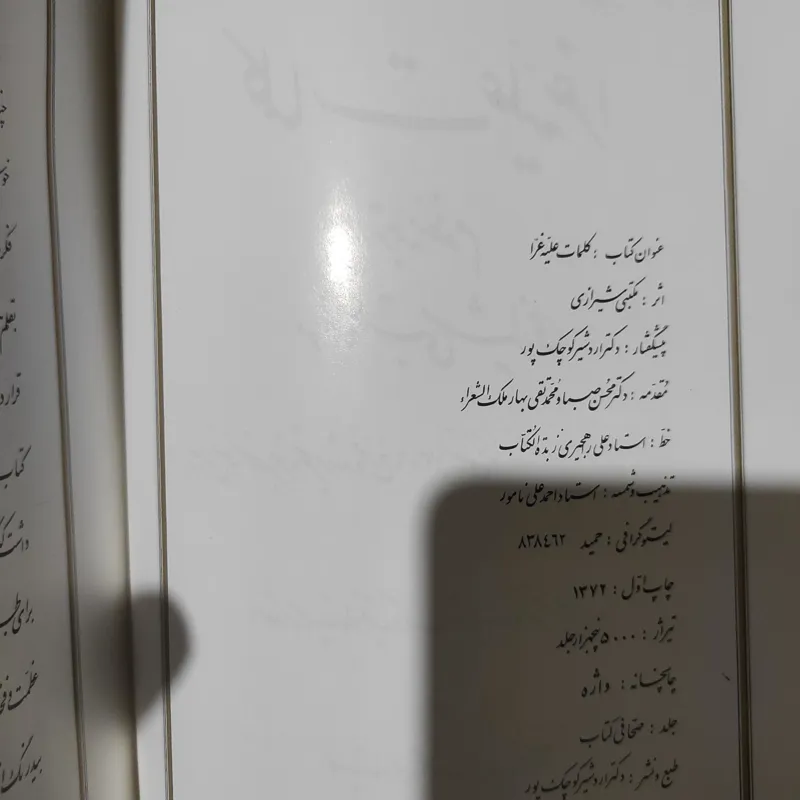 عنوان کتاب : کلمات علیّه غرّا
اثر : مکتبی شیرازی
پیشگفتار : دکتر اردشیر کوچک پور
مُقدّمه : دکتر محسن صبا و محمّد تقی بهار ملک الشعراء
خطّ : استاد علی رهجیری زبدة الکُتّاب
تذهیب و شمسه : استاد احمد علی نامور
لیتوگرافی : حمید ۸۳۸٤٦۲
چاپ اوّل : ۱۳۷۲
تیراژ : ۵۰۰۰ پنجهزار جلد
چاپخانه : واژه
جلد : صحافی کتاب
طبع و نشر : دکتر اردشیر کوچک پور
فکر
بقلم
قرار د
کتاب
داشت
برای ط
عظمت و ف
بیدرنگ